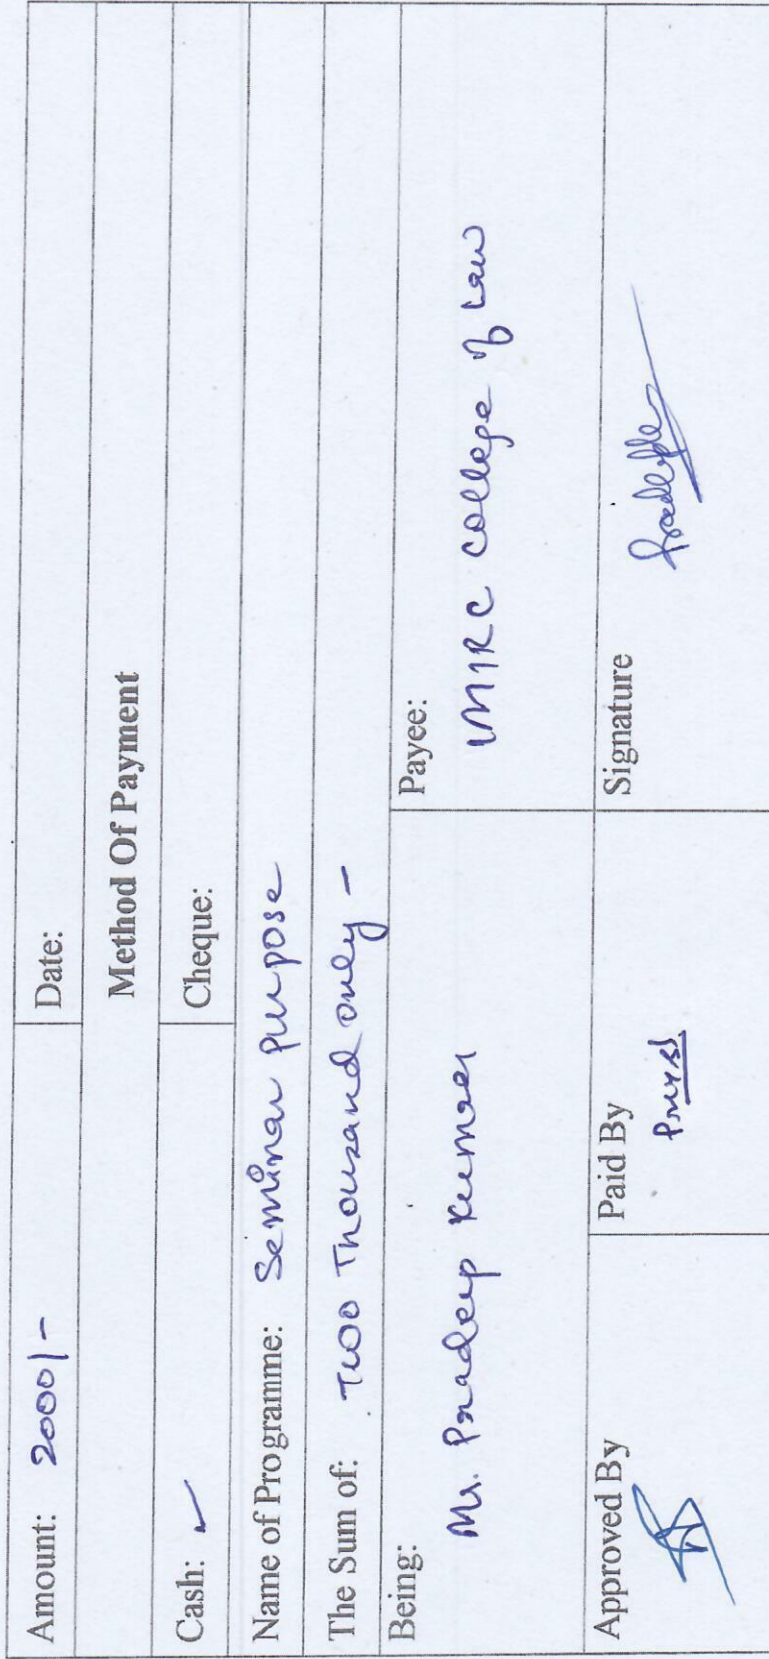 Amount: 2000/- Date:
Method Of Payment
Cash: ✓ Cheque:
Name of Programme: Seminar purpose
The Sum of: Two Thousand only -
Being: Payee:
Mr. Pradeep Kumar MIRC College of Law
Approved By Paid By Signature